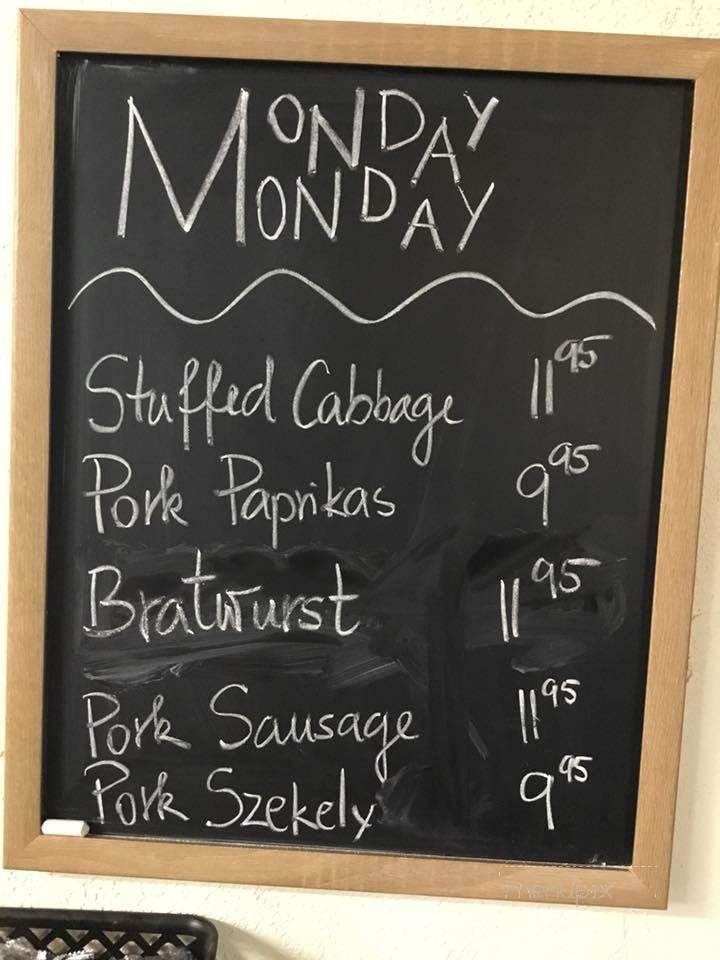 MONDAY
MONDAY
Stuffed Cabbage 11 95
Pork Paprikas 9 95
Bratwurst 11 95
Pork Sausage 11 95
Pork Szekely 9 95
menupix